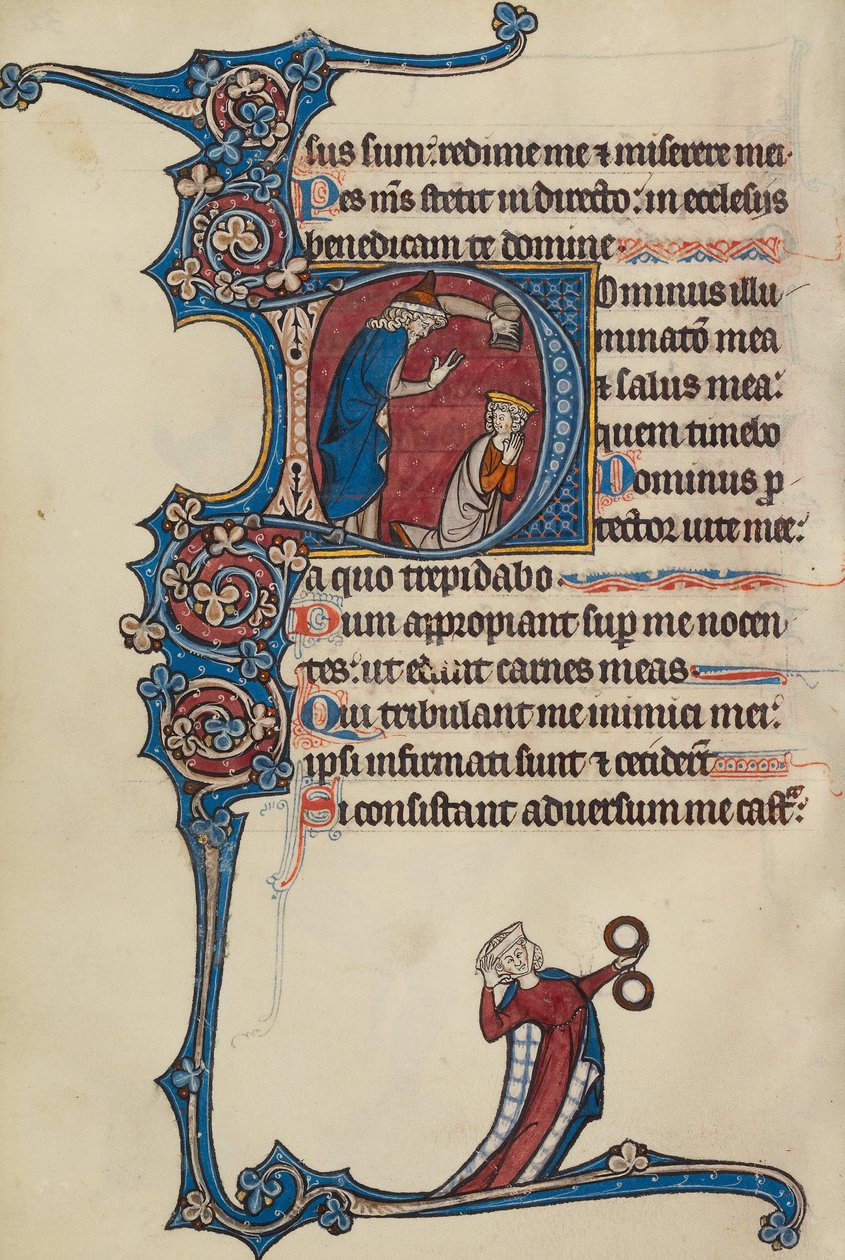 sus sum: redime me ⁊ miserere mei.
Pes m̄s stetit in directo: in ecclesiis
benedicam te domine
Dominus illu
minatō mea
⁊ salus mea:
quem timebo
Dominus ꝓ
tector uite mee:
a quo trepidabo.
Dum appropiant suꝑ me nocen
tes: ut edant carnes meas
Qui tribulant me inimici mei:
ipsi infirmati sunt ⁊ cecider̄t
Si consistant aduersum me castͬa: